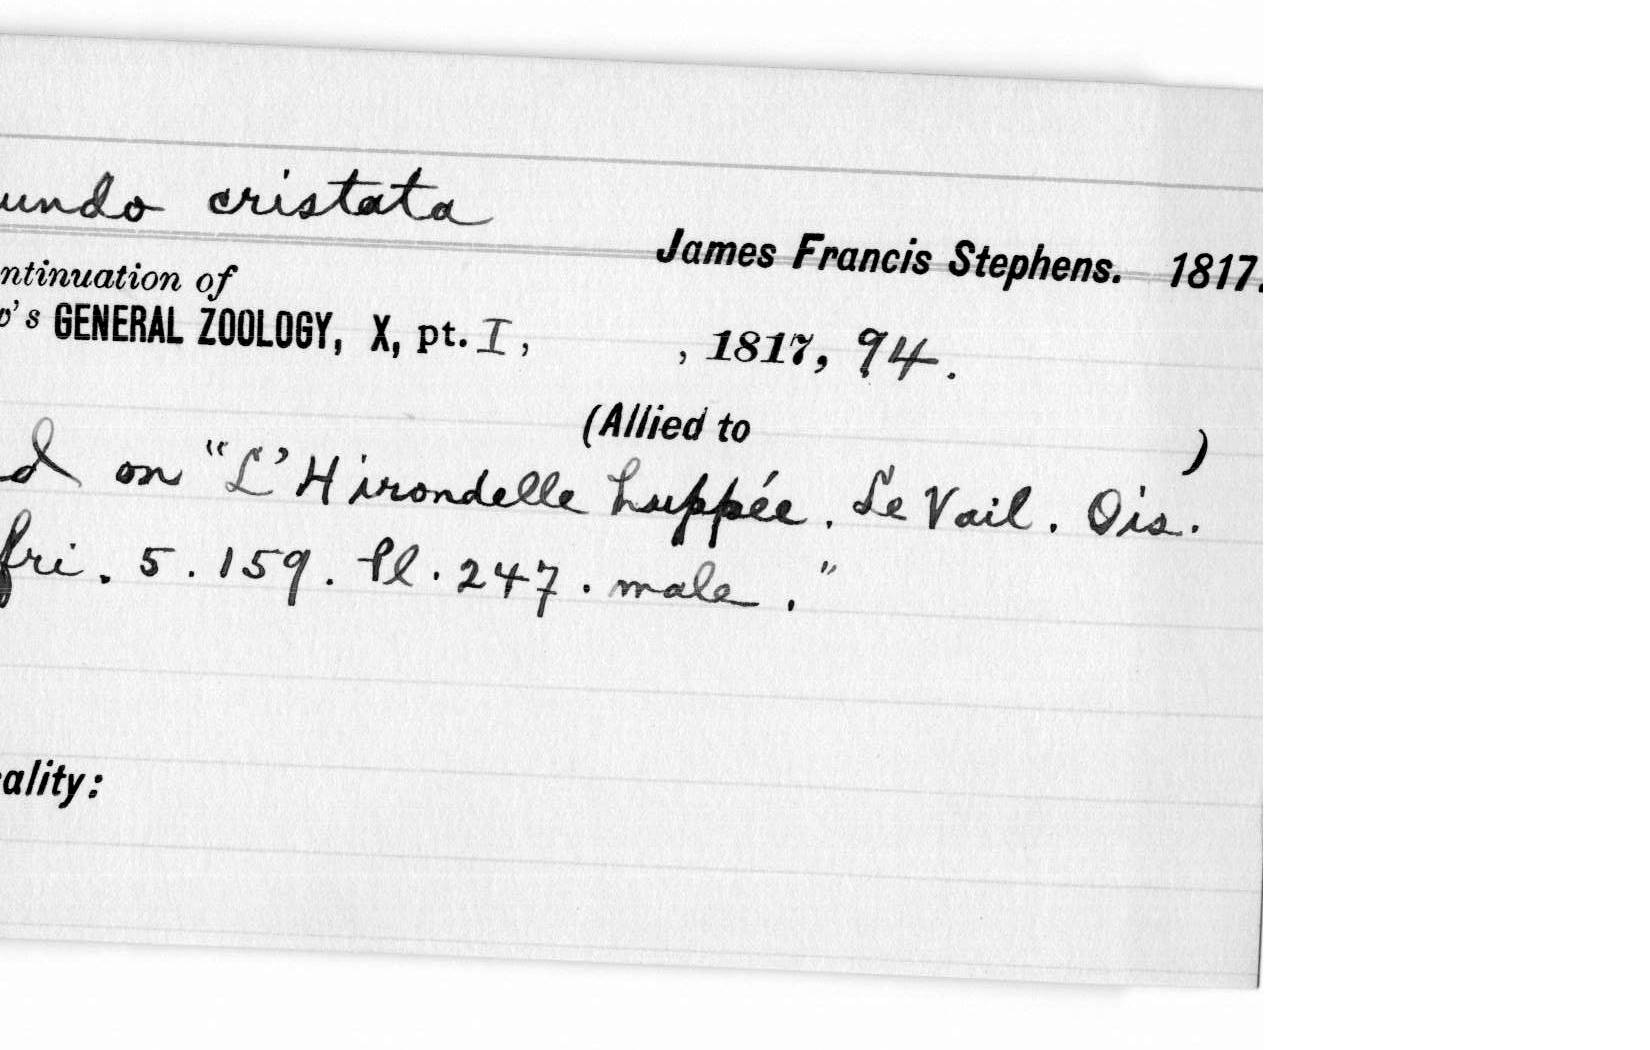 undo cristata
James Francis Stephens. 1817.
ntinuation of
's GENERAL ZOOLOGY, X, pt. I, , 1817, 94.
(Allied to )
d on "L'Hirondelle huppée. Le Vail. Ois.
fri. 5. 159. Pl. 247. male."
ality: